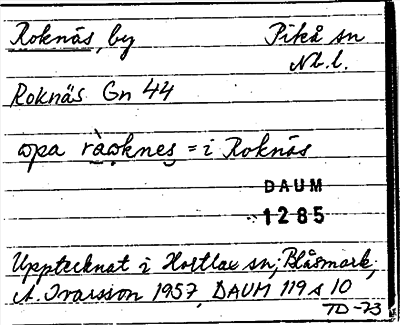 Roknäs, by Piteå sn
Nb.l.
Roknäs Gn 44
ɷpa ràɷknes = i Roknäs
DAUM
1285
Upptecknat i Hortlax sn; Blåsmark,
A. Ivarsson 1957, DAUM 119 s 10
TD-73